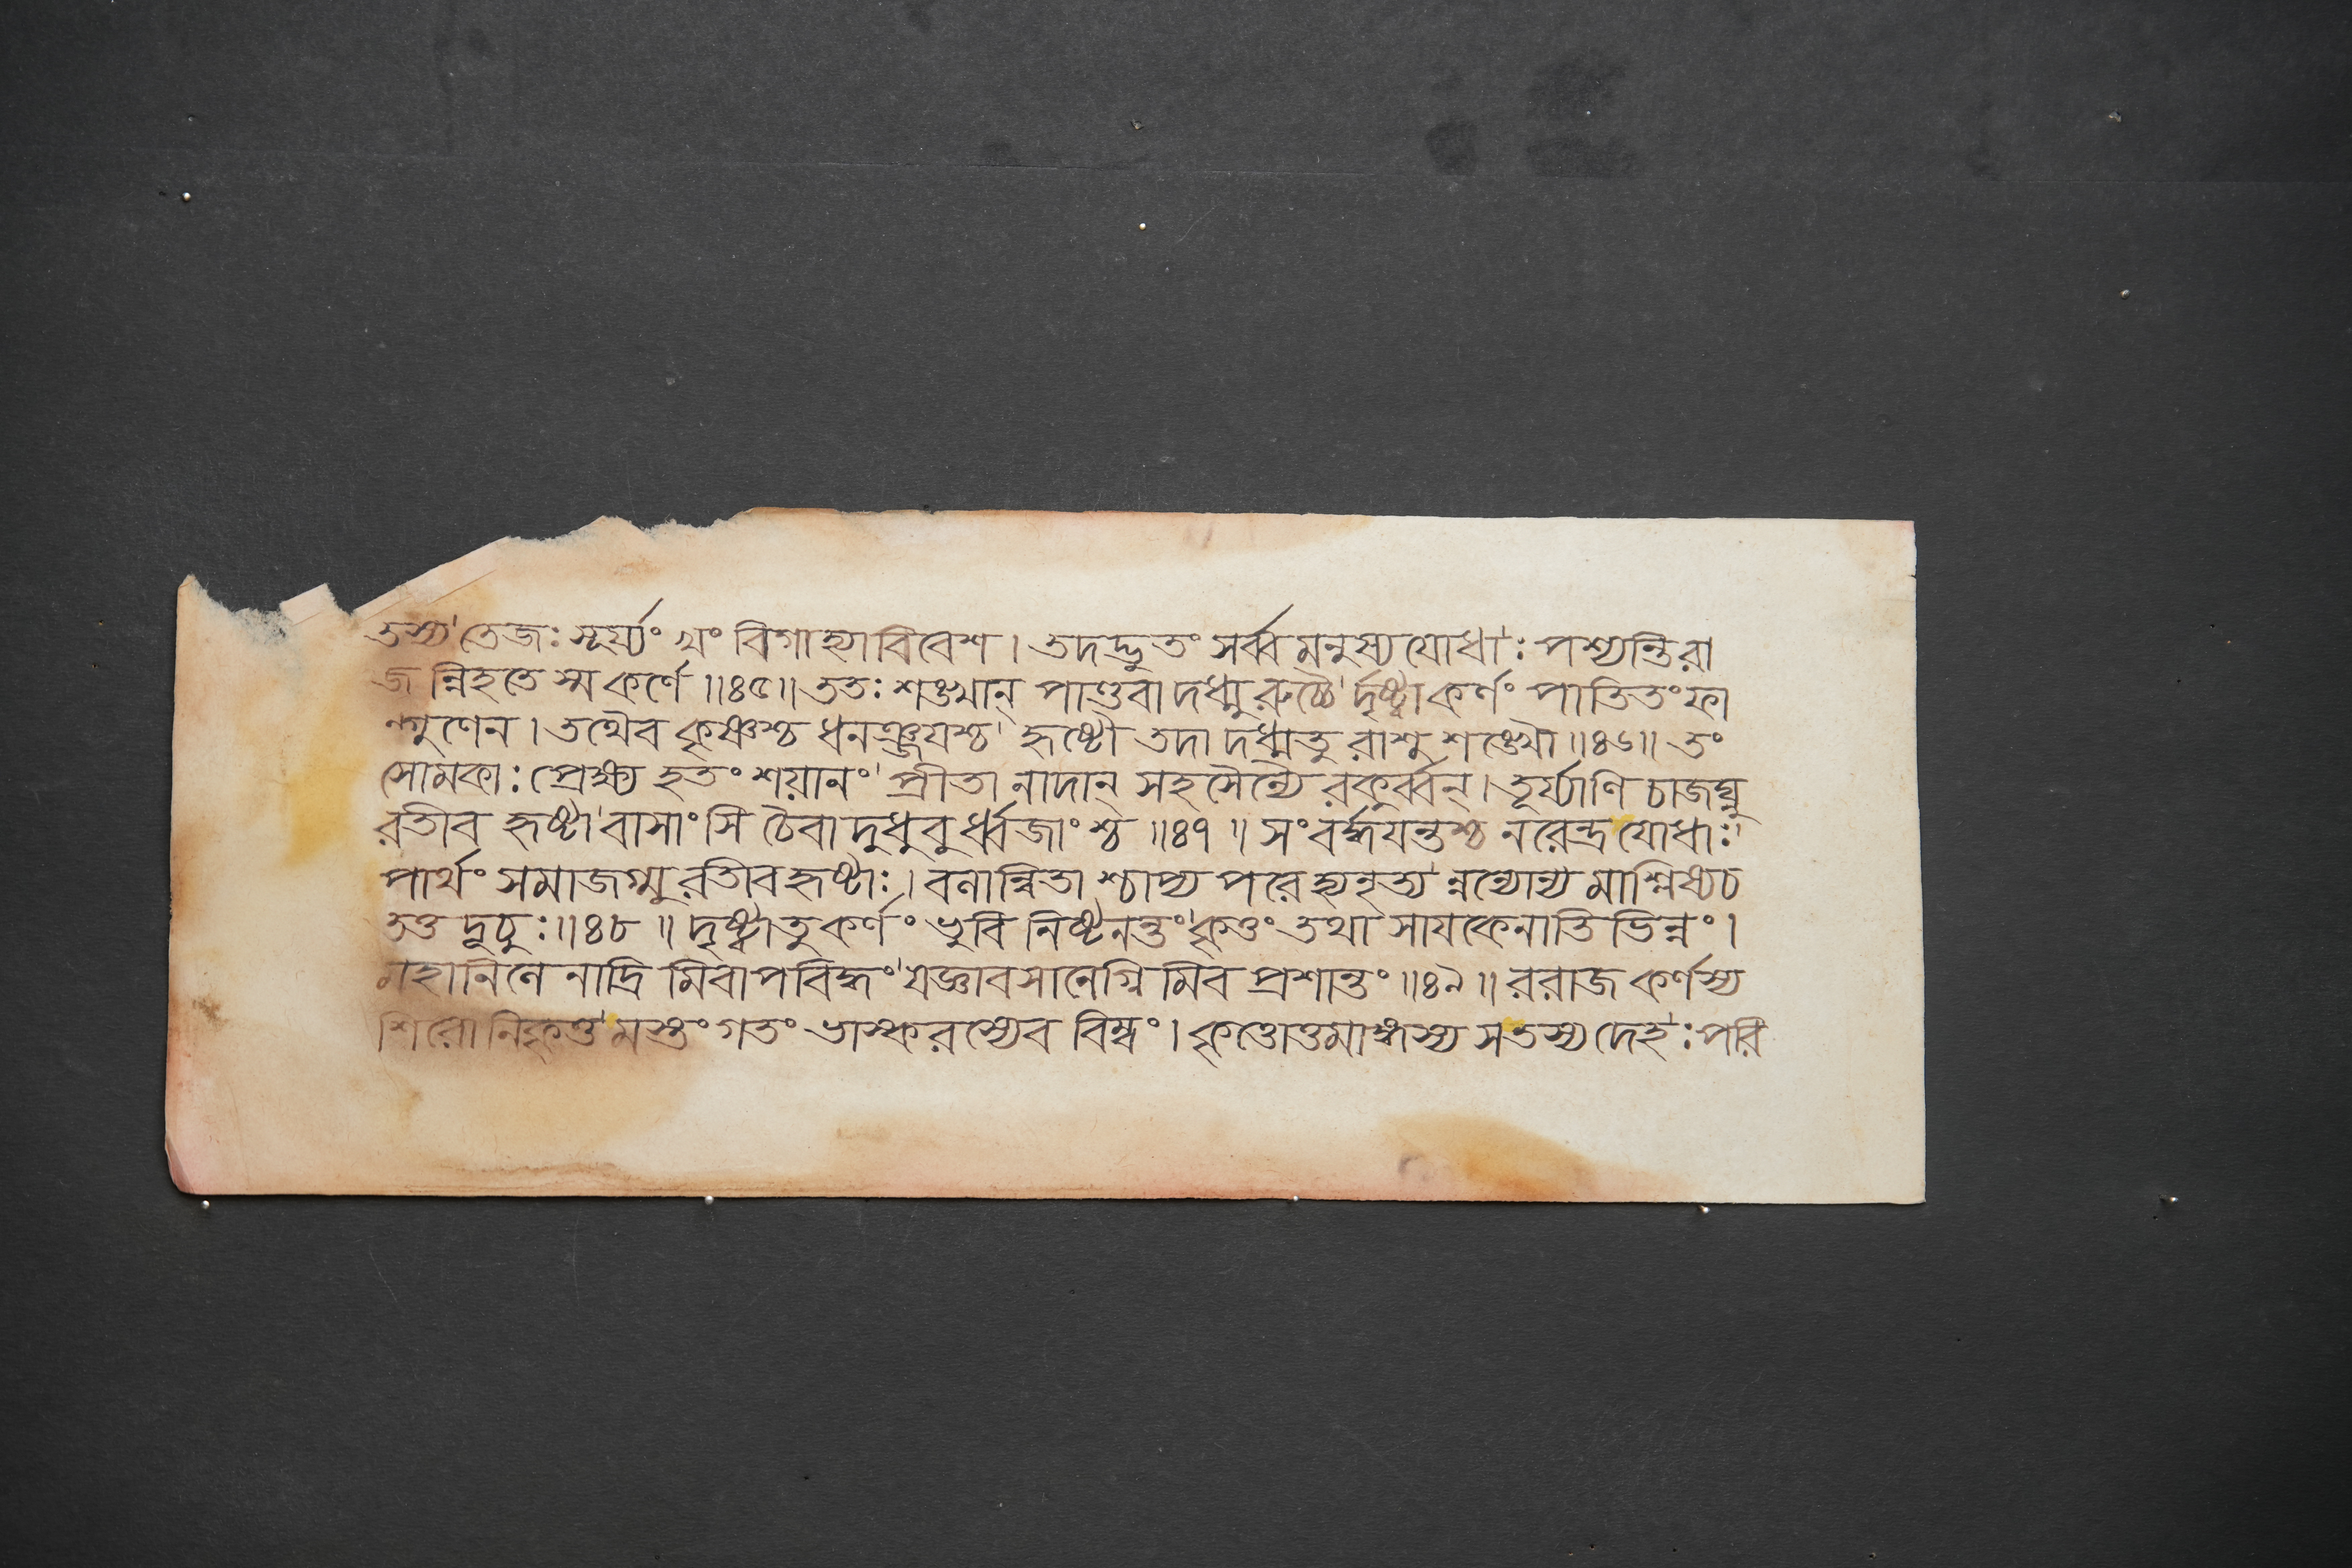 তস্য তেজঃ সূর্য্যং খং বিগাহ্যাবিবেশ। তদদ্ভুতং সর্ব্ব মনুস্য যোধাঃ পশ্যন্তি রা
জ ন্নিহতে স্ম কর্ণে ॥৪৫॥ ততঃ শঙ্খান্ পাণ্ডবা দধ্মু রুচ্চৈ র্দৃষ্ট্বা কর্ণং পাতিতং ফা
ল্গুণেন। তথৈব কৃষ্ণশ্চ ধনঞ্জযশ্চ হৃষ্টৌ তদা দধ্মতু রাশু শঙ্খৌ ॥৪৬॥ তং
সোমকাঃ প্রেক্ষ্য হতং শয়ানং প্রীতা নাদান্ সহসৈন্যৈ রকুর্ব্বন্। তূর্য্যাণি চাজঘ্নু
রতীব হৃষ্টা বাসাংসি চৈবা দুধুবু র্ধ্বজাংশ্চ ॥৪৭॥ সংবর্দ্ধযন্তশ্চ নরেন্দ্র যোধাঃ
পার্থং সমাজগ্মু রতীব হৃষ্টাঃ। বলান্বিতা শ্চাপ্য পরে হ্যনৃত্য ন্নন্যোন্য মাশ্লিষ্য চ
তত্ত দূচুঃ ॥৪৮॥ দৃষ্ট্বা তু কর্ণং ভুবি নিষ্টনন্তং কৃত্তং তথা সাযকেনাতি ভিন্নং।
মহানিলে নাদ্রি মিবাপবিদ্ধং যজ্ঞাবসানেগ্নি মিব প্রশান্তং ॥৪৯॥ ররাজ কর্ণস্য
শিরো নিকৃত্ত মস্তং গতং ভাস্করস্যেব বিম্বং। কৃত্তোত্তমাঙ্গস্য স তস্য দেহঃ পরি